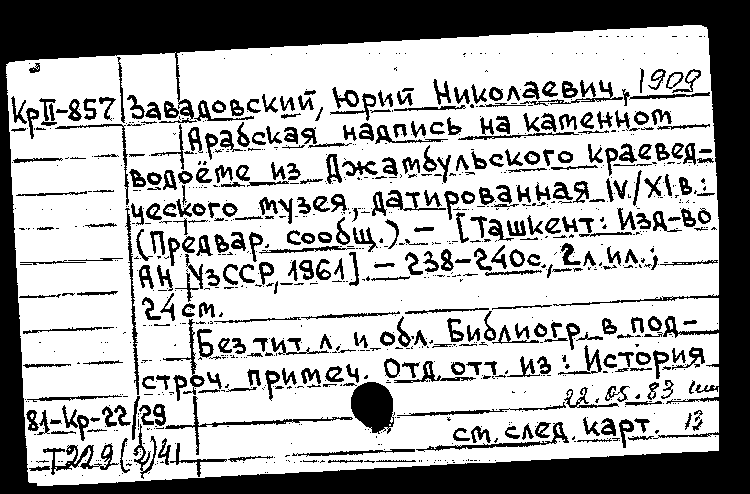 КрII-857 Завадовский, Юрий Николаевич, 1909
Арабская надпись на каменном
водоёме из Джамбульского краевед-
ческого музея, датированная IV./XI в.:
(Предвар. сообщ.). — [Ташкент: Изд-во
АН УзССР, 1961]. — 238-240с., 2 л. ил.;
24 см.
Без тит. л. и обл. Библиогр. в под-
строч. примеч. Отд. отт. из: История
22.05.83
81-Кр-22/29
см. след. карт. 13
Т229(2)41